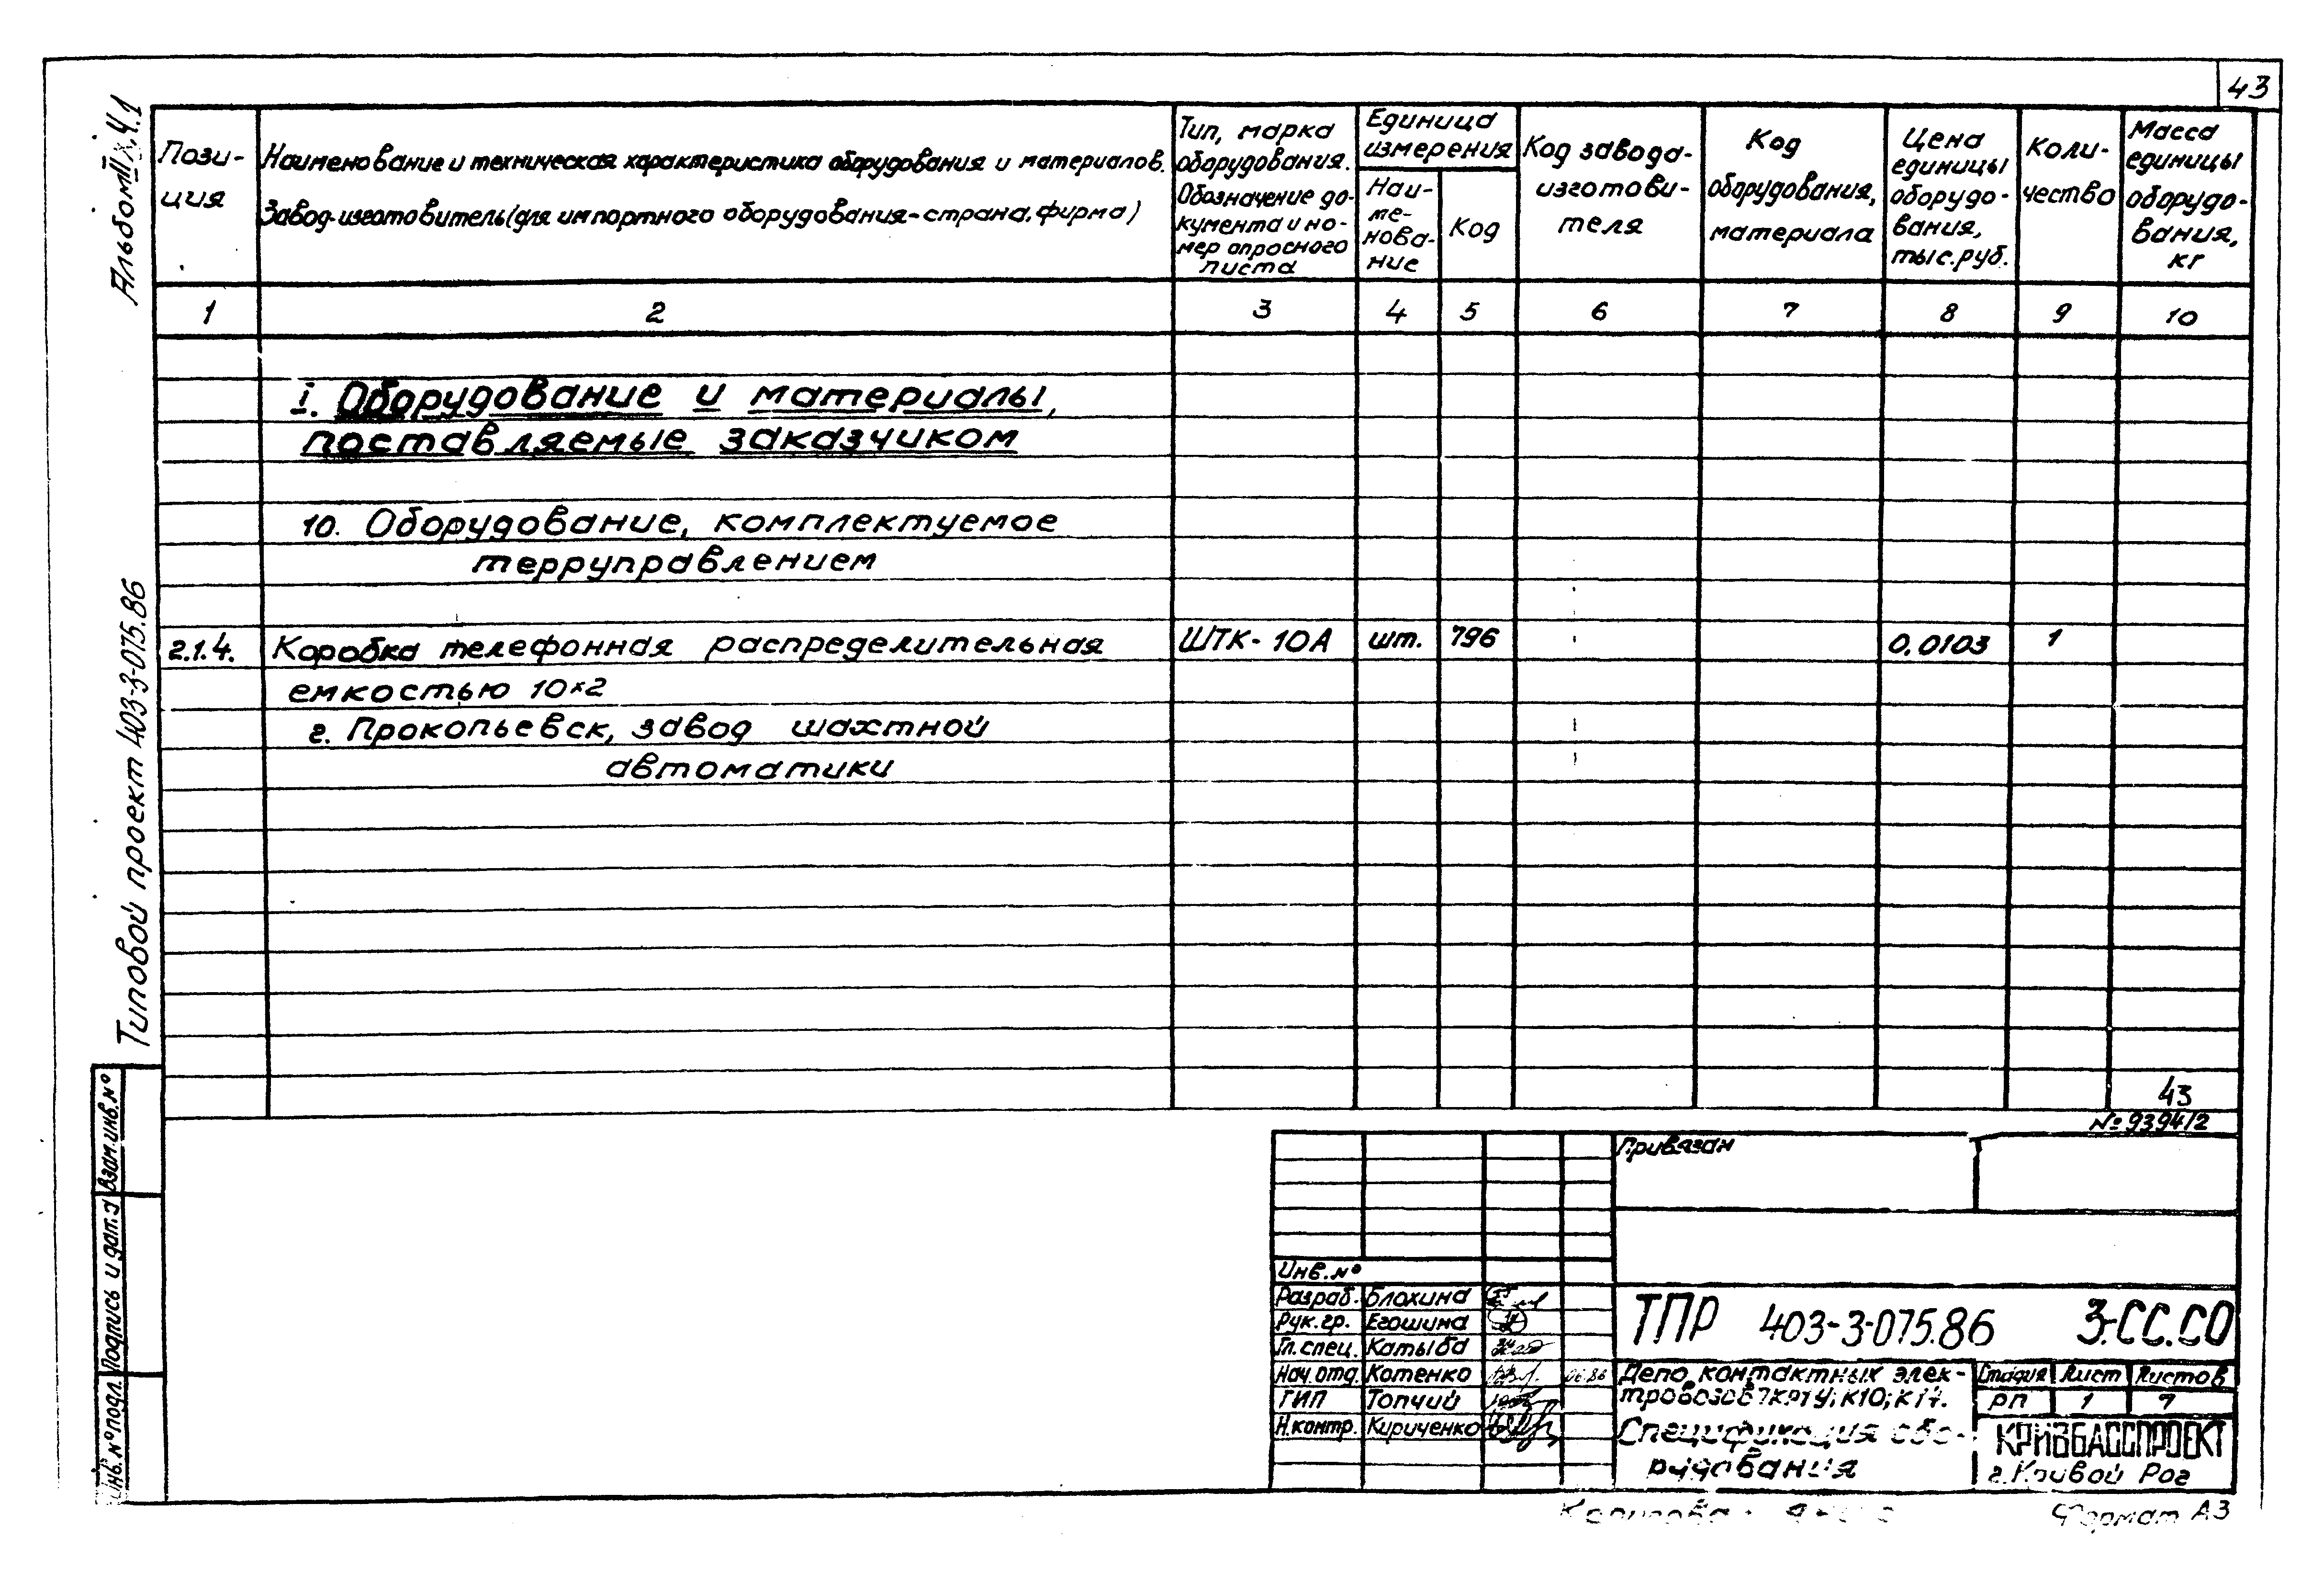 43
Альбом III, ч.1
Типовой проект 403-3-075.86
Пози-
ция
Наименование и техническая характеристика оборудования и материалов.
Завод-изготовитель (для импортного оборудования-страна, фирма)
Тип, марка
оборудования.
Обозначение до-
кумента и но-
мер опросного
листа
Единица
измерения
Наи-
ме-
нова-
ние
Код
Код завода-
изготови-
теля
Код
оборудования,
материала
Цена
единицы
оборудо-
вания,
тыс.руб.
Коли-
чество
Масса
единицы
оборудо-
вания,
кг
1 2 3 4 5 6 7 8 9 10
I. Оборудование и материалы,
поставляемые заказчиком
10. Оборудование, комплектуемое
терруправлением
2.1.4. Коробка телефонная распределительная ШТК-10А шт. 796 0,0103 1
емкостью 10×2
г. Прокопьевск, завод шахтной
автоматики
43
№ 9394/2
Взам.инв.№
Подпись и дата
Инв.№подл.
Привязан
Инв.№
Разраб. Блохина
Рук.гр. Егошина
Гл.спец. Катыба
Нач.отд. Котенко 06.86
ГИП Топчий
Н.контр. Кириченко
ТПР 403-3-075.86 3-СС.СО
Депо контактных элек-
тровозов 7КР1У; К10; К14.
Спецификация обо-
рудования
Стадия Лист Листов
РП 1 7
КРИВБАССПРОЕКТ
г.Кривой Рог
Формат А3